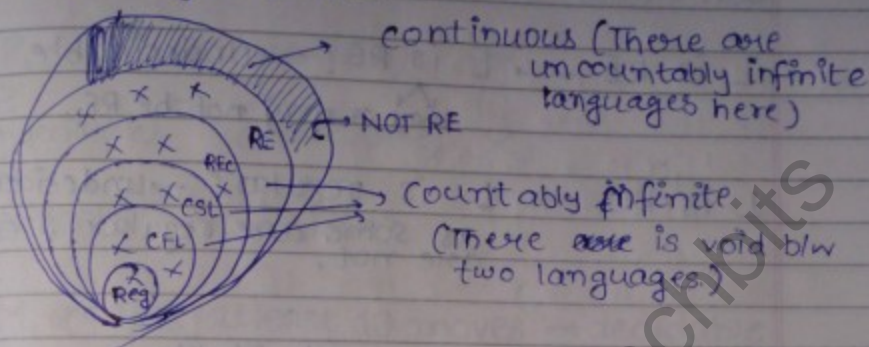 continuous (There are
uncountably infinite
languages here)
NOT RE
RE
REC
Countably infinite
CSL
(There is void b/w
CFL
two languages.)
Reg